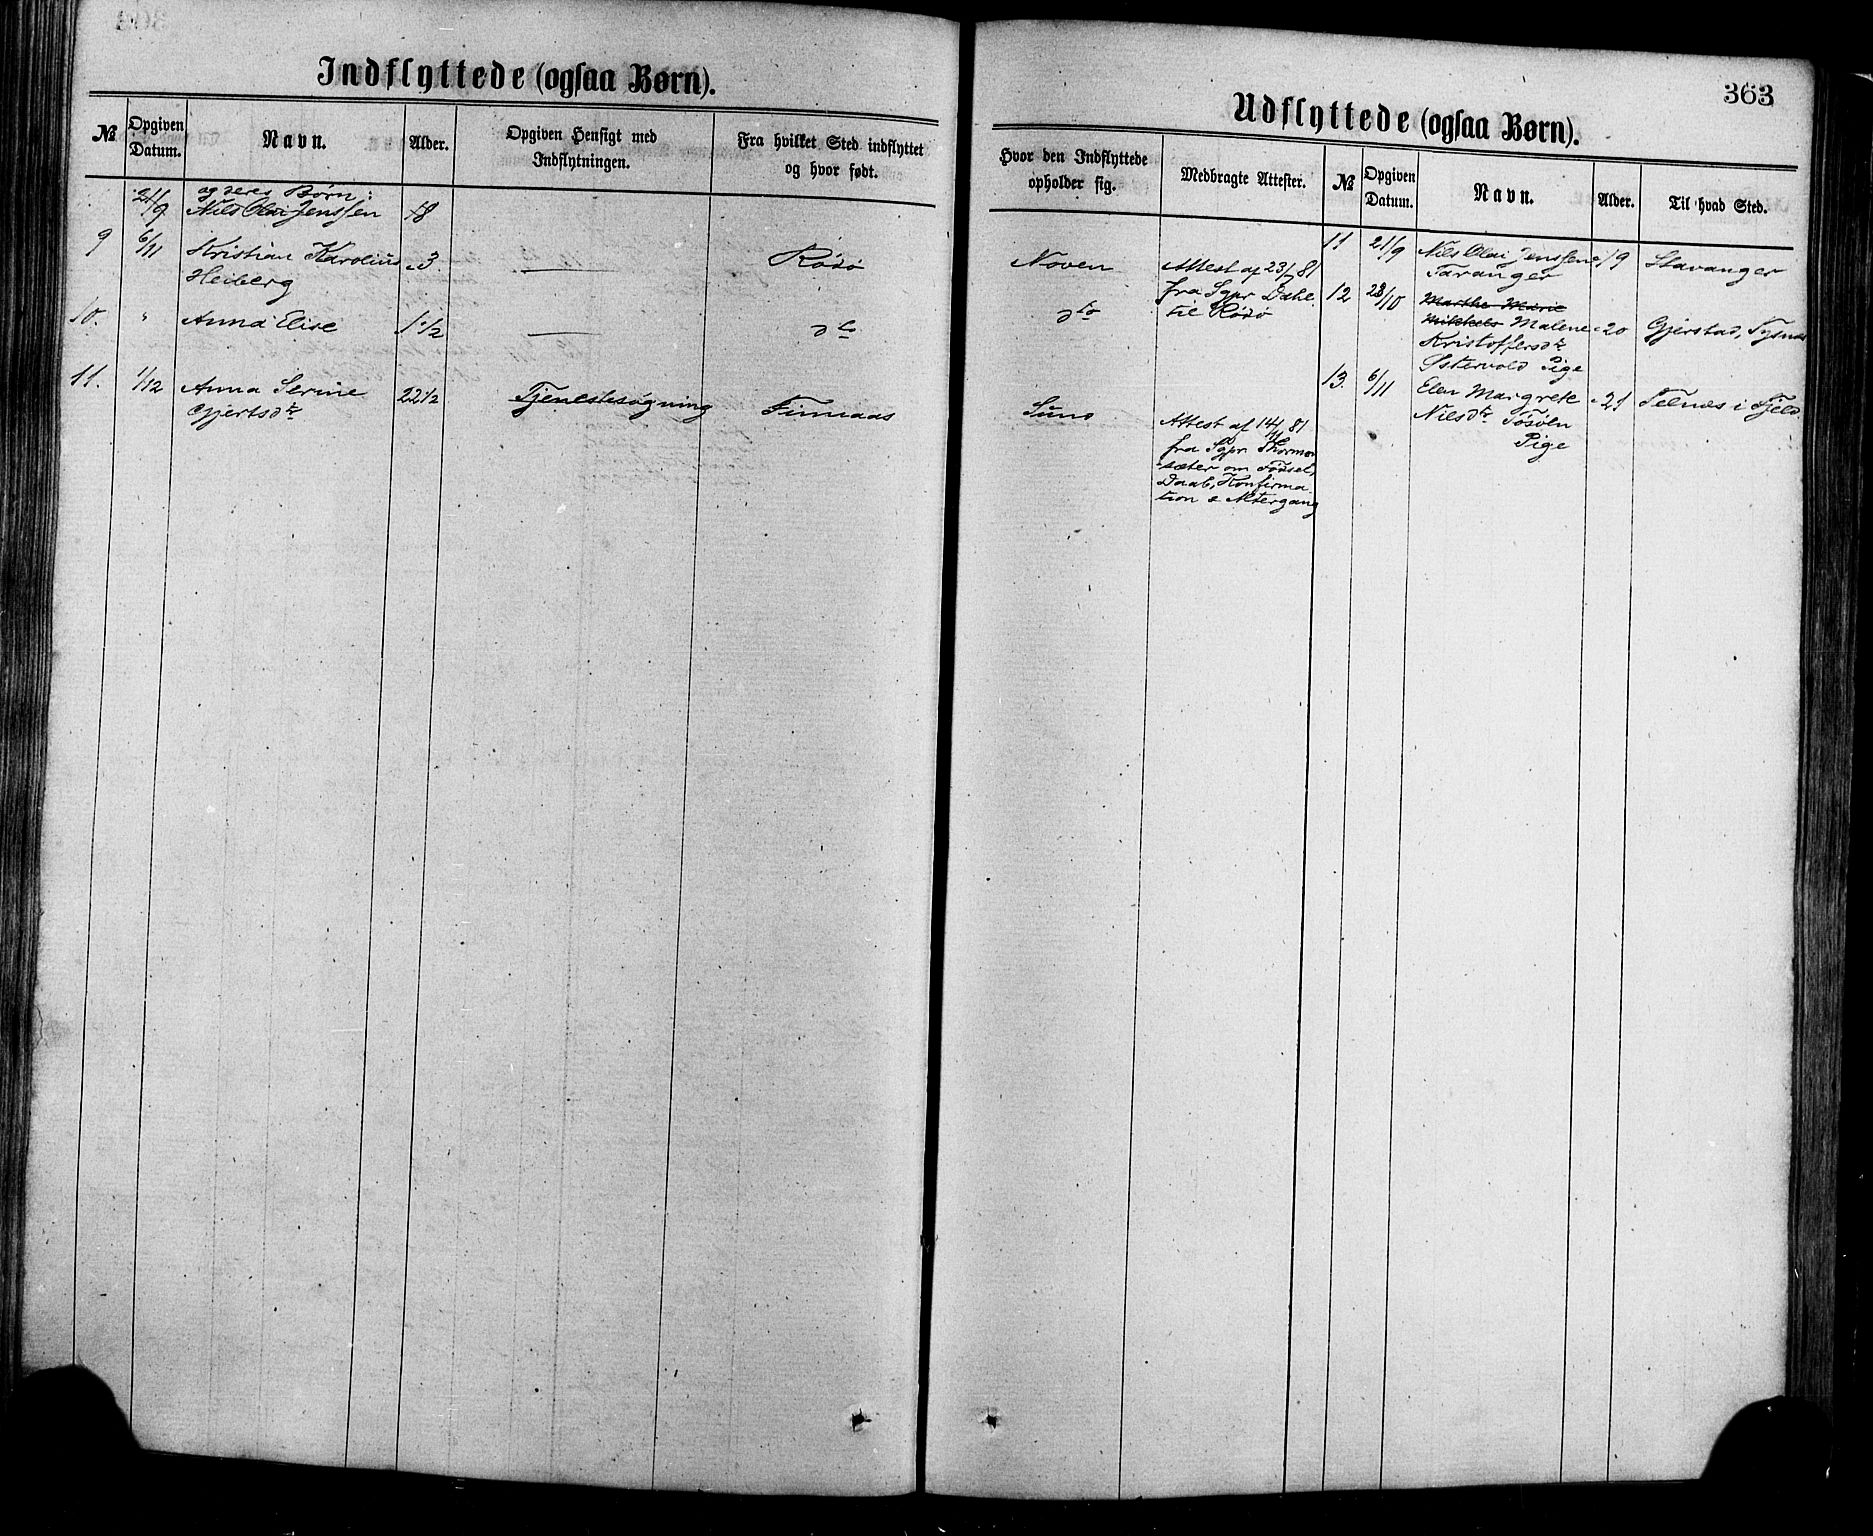 Indflyttede (ogsaa Børn).
№
Opgiven
Datum.
Navn.
Alder.
Opgiven Hensigt med
Indflytningen.
Fra hvilket Sted indflyttet
og hvor født.
og deres Børn:
21/9 Nils Olai Jenssen 18
9 6/11 Kristian Karolius 3 — Rödö
Heiberg
10. " Anna Elise 1 1/2 — do
11. 1/12 Anna Serine 22 1/2 Tjenestesøgning Finnaas
Gjertsdtr
363
Udflyttede (ogsaa Børn).
Hvor den Indflyttede
opholder sig.
Medbragte Attester.
№
Opgiven
Datum.
Navn.
Alder.
Til hvad Sted.
Noven Attest af 23/7 81
fra Sgpr Dahl
do til Rödö
Sund Attest af 14/11 81
fra Sgpr Thormod
sæter om Födsel,
Daab, Konfirma
tion & Altergang
11 21/9 Nils Olai Jenssen 19 Stavanger
Taranger
12 23/10 Marthe Marie
Mikkels Malene 20 Gjerstad, Tysnæs
Kristoffersdtr
Østervold Pige
13. 6/11 Elen Margrete 21 Telnæs i Fjeld
Nilsdtr Tösöen
Pige